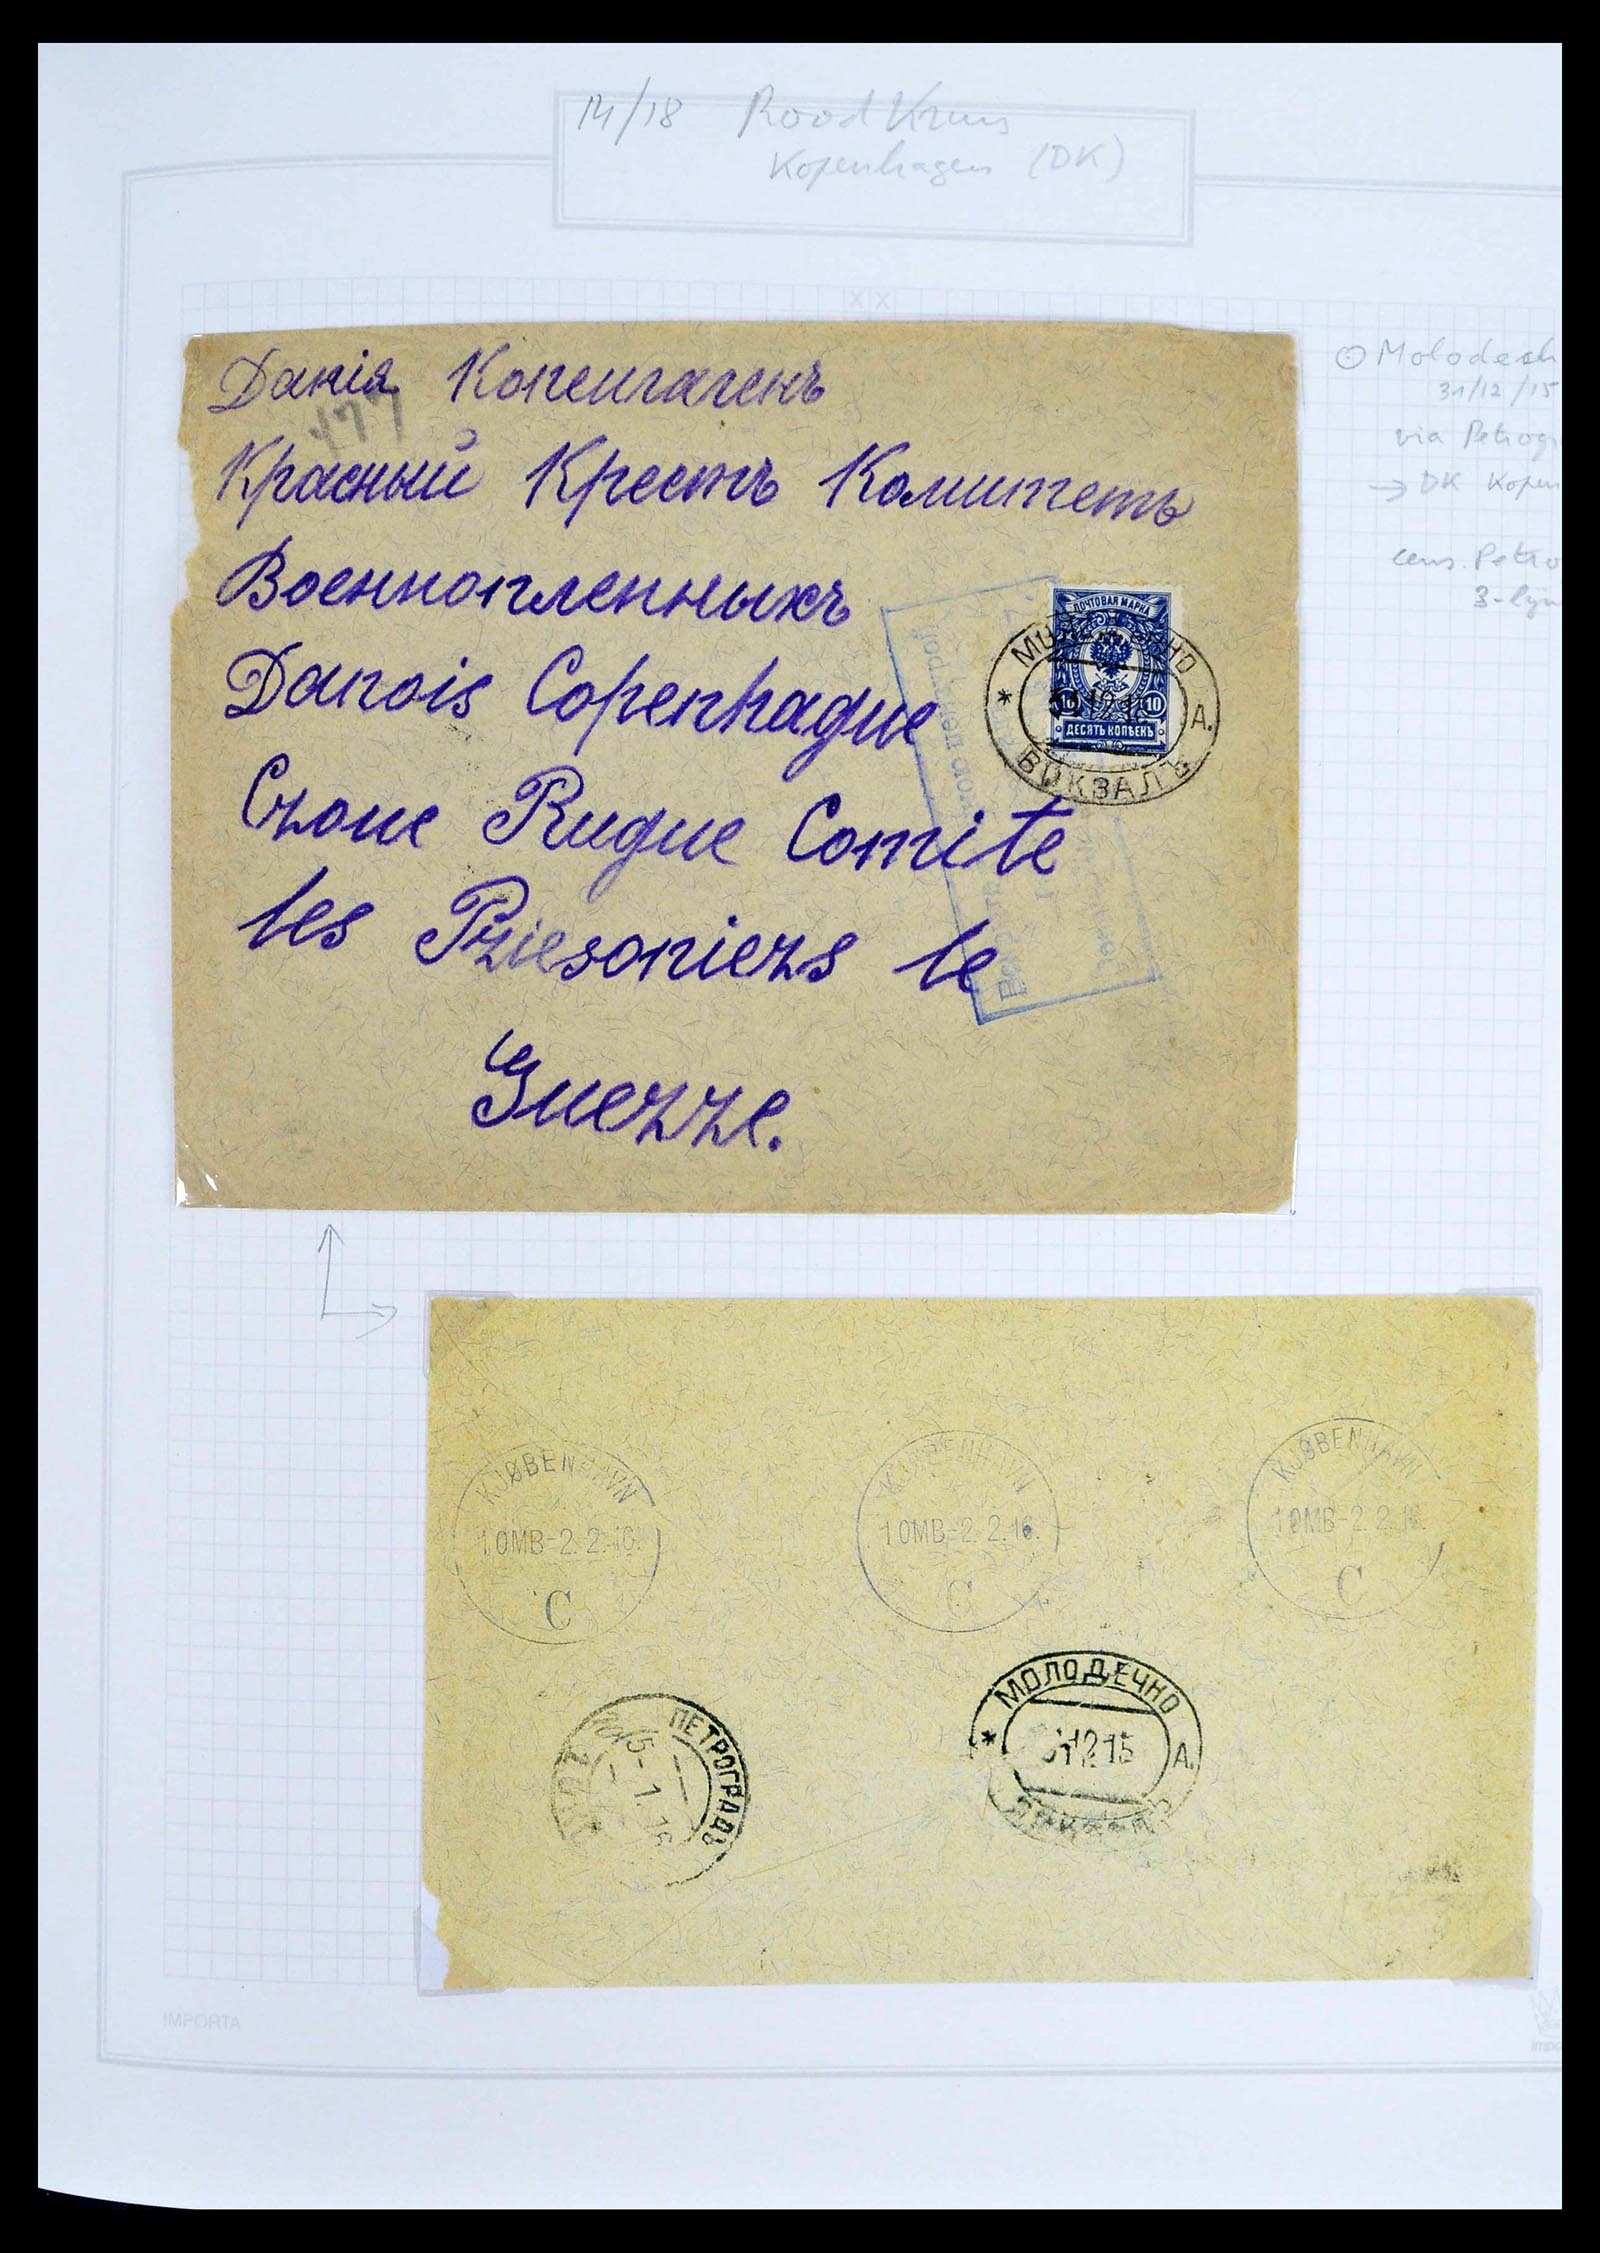 14/18 Rood Kruis
Kopenhagen (DK)
X X
Данія Копенгагенъ
177
Красный Крестъ Комитетъ
Военнопленныхъ
Danois Copenhague
Czoue Rugue Comite
les Pziesoniezs le
Guezze.
ПОЧТОВАЯ МАРКА
10 10
ДЕСЯТЬ КОПѢЕКЪ
МОЛОДЕЧНО
31.12.15
* А.
ВОКЗАЛЪ
Molodech
31/12/15
via Petrogr
→ DK Kopen
cens. Petro
3-lyn
KJØBENHAVN
10MB-2.2.16.
C
KJØBENHAVN
10MB-2.2.16.
C
KJØBENHAVN
10MB-2.2.16.
C
ПЕТРОГРАДЪ
5-1.16
МОЛОДЕЧНО
* 31.12.15 А.
ВОКЗАЛЪ
IMPORTA